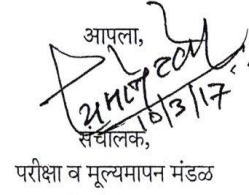 आपला,
10/3/17
संचालक,
परीक्षा व मूल्यमापन मंडळ